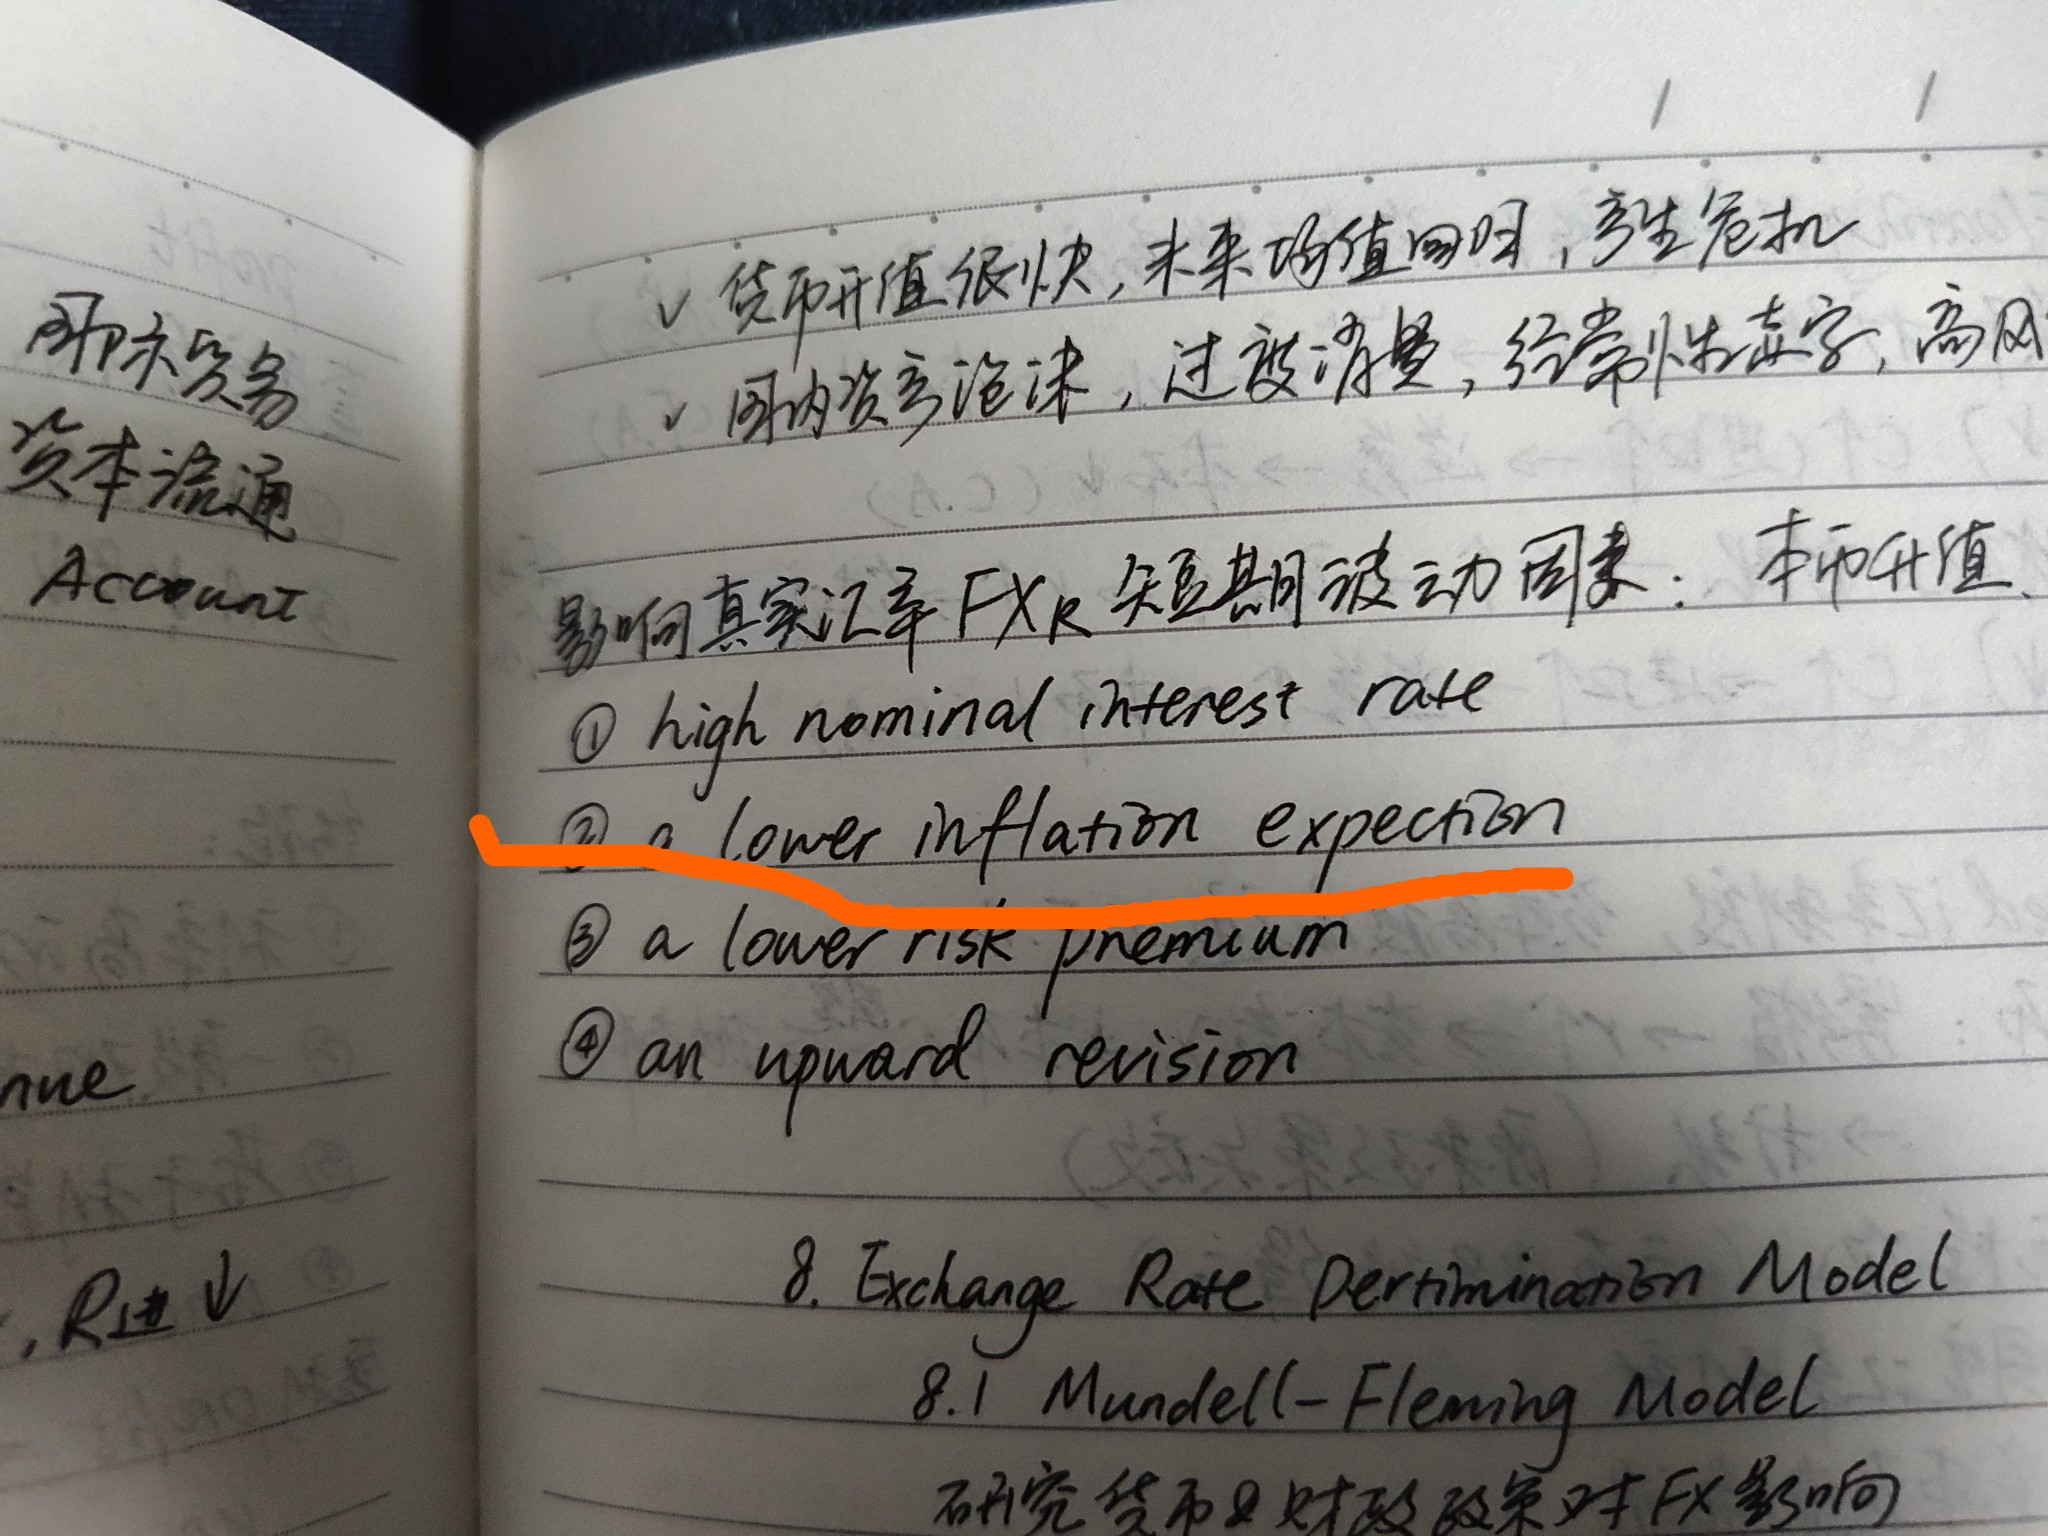 国际贸易
资本流通
Account
nue
, R进↓
✓ 货币升值很快,未来均值回归,产生危机
✓ 国内资产泡沫,过度消费,经常性赤字,高风
影响真实汇率FXR短期波动因素:本币升值
① high nominal interest rate
② a lower inflation expection
③ a lower risk premium
④ an upward revision
8. Exchange Rate Dertimination Model
8.1 Mundell-Fleming Model
研究货币&财政政策对FX影响